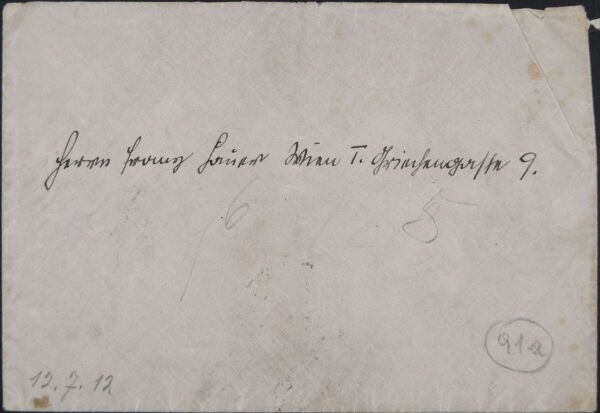 Herrn Franz Hauer Wien I. Griechengasse 9.
6 5
91a
12.7.12